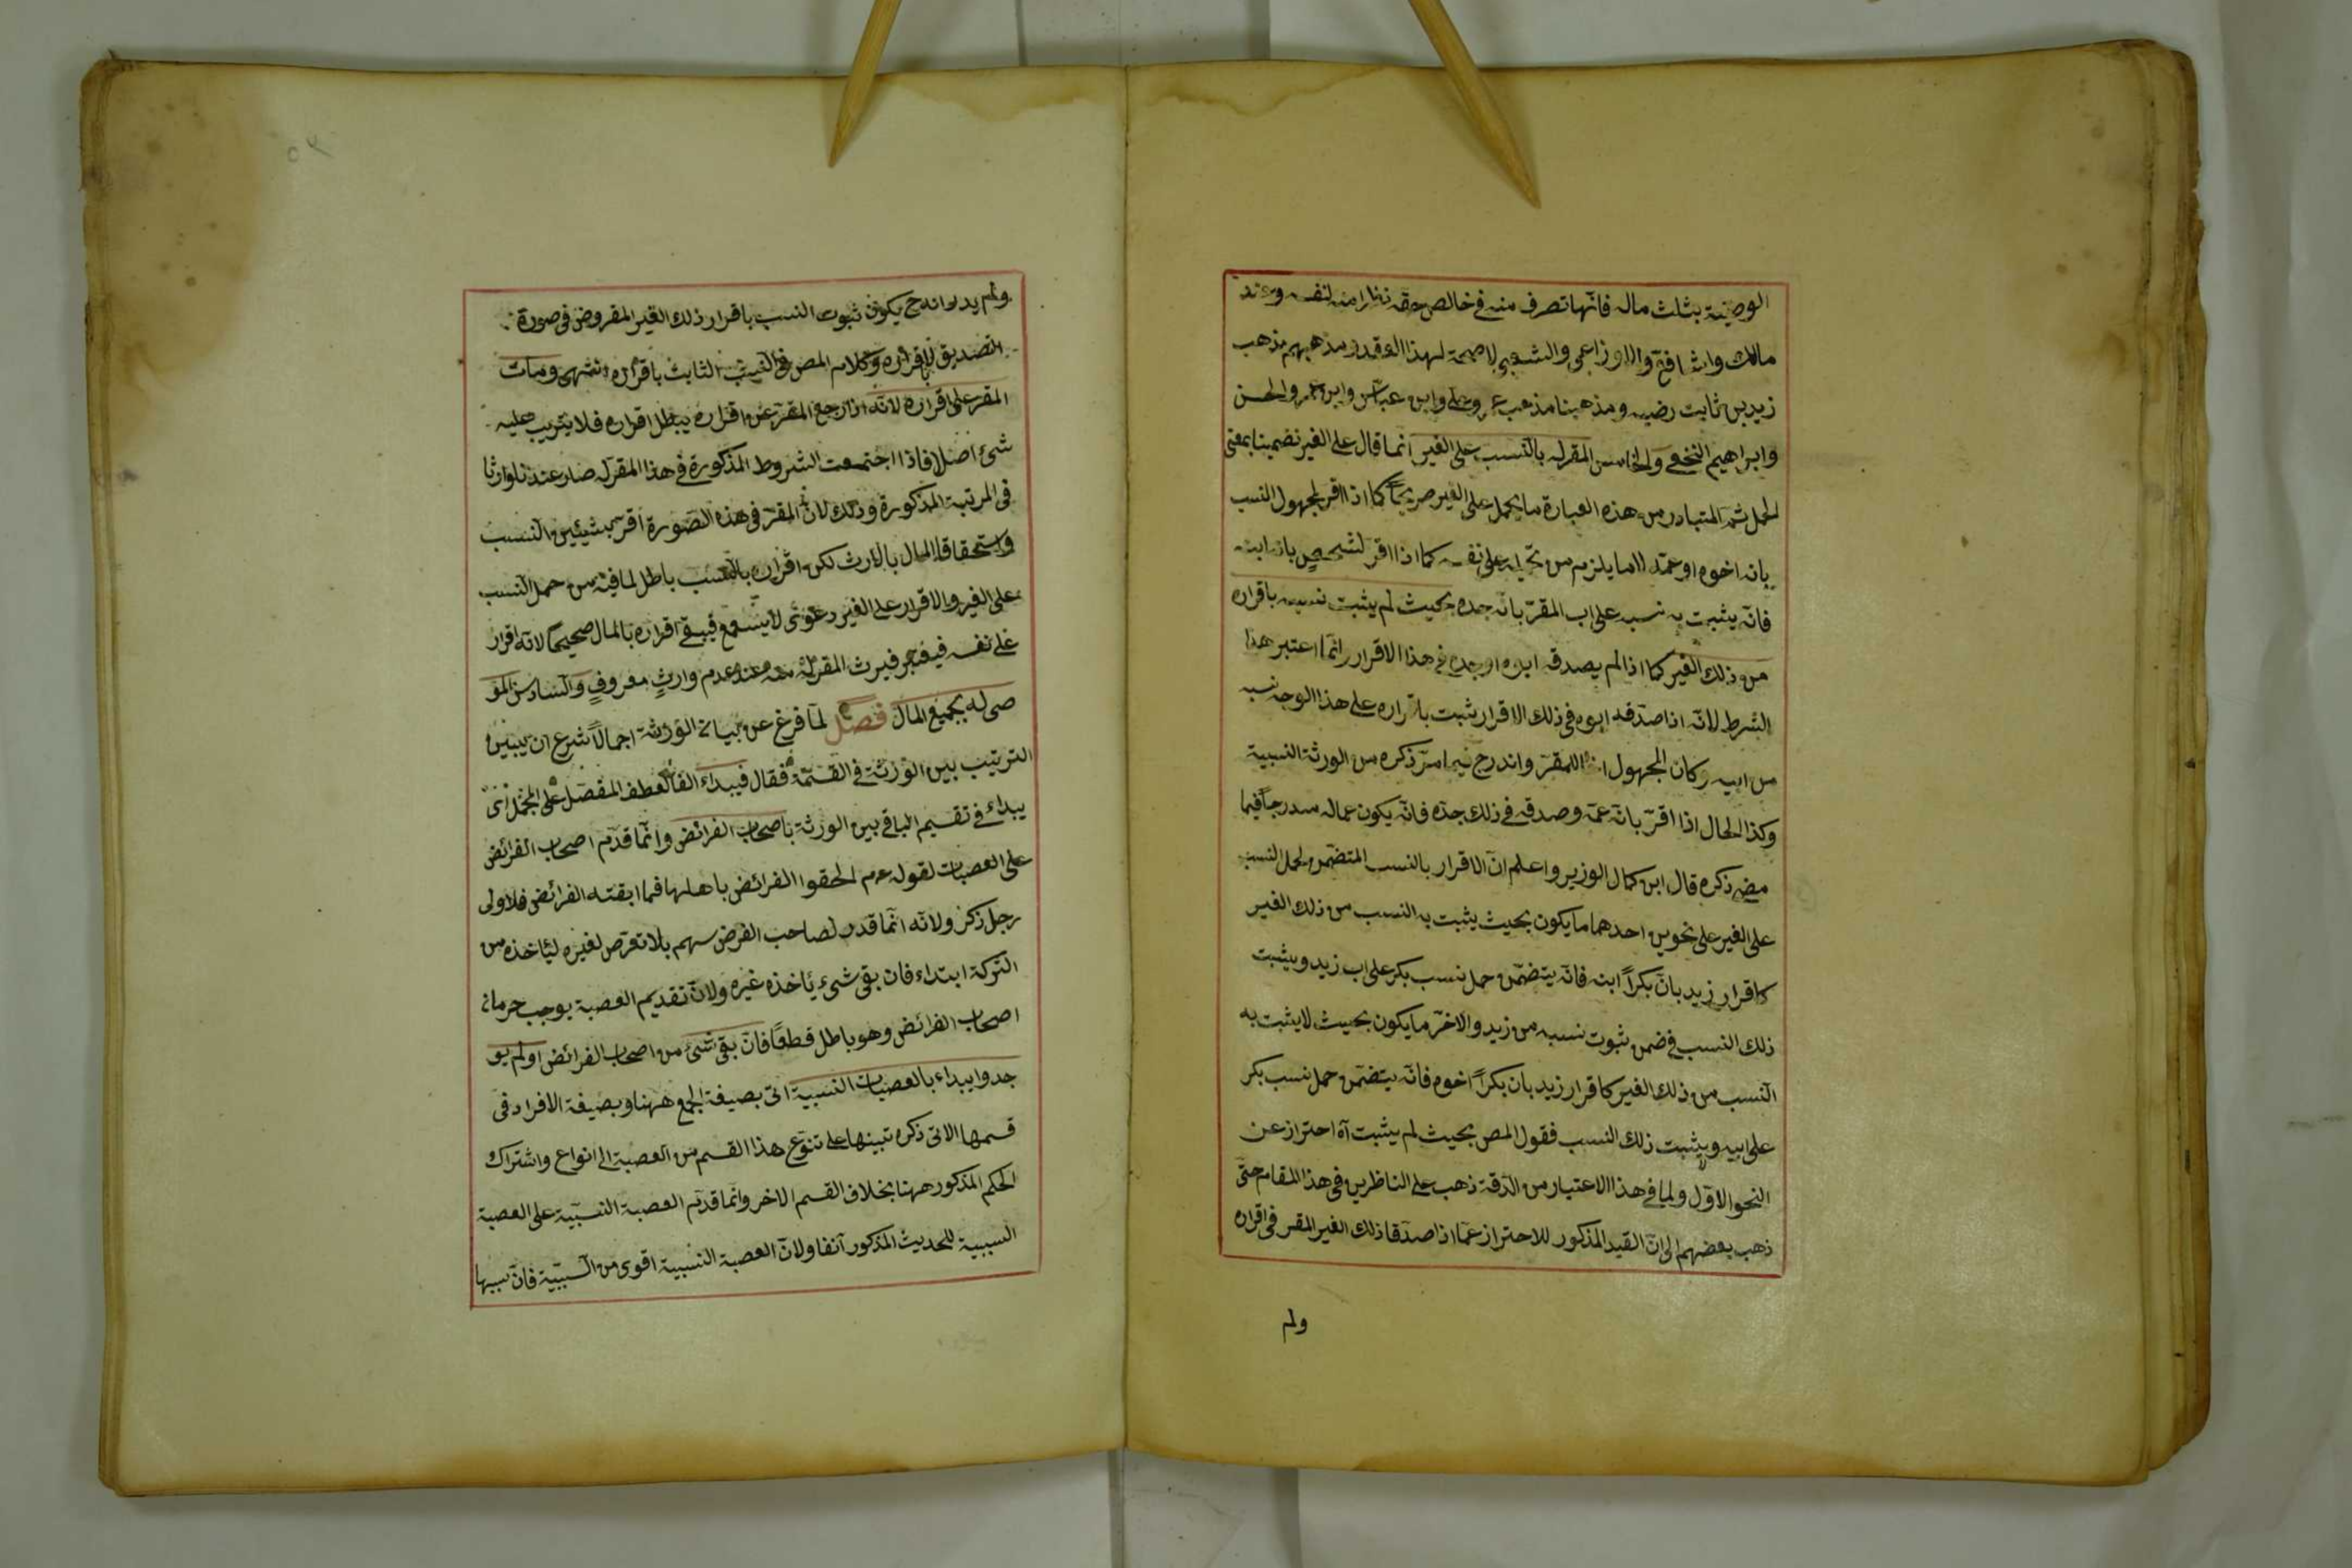 الوصية بثلث ماله فانها تصرف منه في خالص حقه نظرا منه لنفسه وعند
مالك والشافعي والاوزاعي والشعبي لا صحة لهذا العقد ومذهبهم مذهب
زيد بن ثابت رضيه ومذهبنا مذهب عمر وعلي وابن عباس وابن عمر والحسن
وابراهيم النخعي والخامس المقر له بالنسب على الغير انما قال على الغير تضمينا بمعنى
الحمل ثم المتبادر من هذه العبارة ما يحمل على الغير صريحاً كما اذا اقر لمجهول النسب
بانه اخوه او عمه لا ما يلزم من تحميله على نفسه كما اذا اقر لشخص بانه ابنه
فانه يثبت به نسبه على اب المقر بانه جده بحيث لم يثبت نسبه باقراره
من ذلك الغير كما اذا لم يصدقه ابوه او جده في هذا الاقرار وانما اعتبر هذا
الشرط لانه اذا صدقه ابوه في ذلك الاقرار يثبت باقراره على هذا الوجه نسبه
من ابيه وكان المجهول اخا للمقر واندرج فيما مر ذكره من الورثة النسبية
وكذا الحال اذا اقر بانه عمه وصدقه في ذلك جده فانه يكون عما له مندرجاً فيما
مضى ذكره قال ابن كمال الوزير واعلم ان الاقرار بالنسب المتضمن لحمل النسب
على الغير على نحوين احدهما ما يكون بحيث يثبت به النسب من ذلك الغير
كاقرار زيد بان بكراً ابنه فانه يتضمن حمل نسب بكر على اب زيد ويثبت
ذلك النسب في ضمن ثبوت نسبه من زيد والاخر ما يكون بحيث لا يثبت به
النسب من ذلك الغير كاقرار زيد بان بكراً اخوه فانه يتضمن حمل نسب بكر
على ابيه ويثبت ذلك النسب فقول المص بحيث لم يثبت آه احتراز عن
النحو الاول ولما في هذا الاعتبار من الدقة ذهب على الناظرين في هذا المقام حتى
ذهب بعضهم الى ان القيد المذكور للاحتراز عما اذا صدقا ذلك الغير المقر في اقراره
ولم
ولم يدر انه ح يكون ثبوت النسب باقرار ذلك الغير المفروض في صورة
التصديق لاقراره وكلام المص في النسب الثابت باقراره انتهى ومات
المقر على اقراره لانه اذا رجع المقر عن اقراره يبطل اقراره فلا يترتب عليه
شئ اصلا فاذا اجتمعت الشروط المذكورة في هذا المقر له صار عندنا وارثا
في المرتبة المذكورة وذلك لان المقر في هذه الصورة اقر بشيئين النسب
واستحقاق المال بالارث لكن اقراره بالنسب باطل لما فيه من حمل النسب
على الغير والاقرار على الغير دعوى لا يسمع فيبقى اقراره بالمال صحيحا لانه اقرار
على نفسه فيعتبر فيرث المقر له منه عند عدم وارث معروف والسادس المو
صى له بجميع المال فصل لما فرغ عن بيان الورثة اجمالاً شرع ان يبين
الترتيب بين الورثة في القسمة فقال فيبداء الفا لعطف المفصل على المجمل اى
يبداء في تقسيم الباقي بين الورثة باصحاب الفرائض وانما قدم اصحاب الفرائض
على العصبات لقوله عم الحقوا الفرائض باهلها فما ابقته الفرائض فلاولى
رجل ذكر ولانه انما قدر لصاحب الفرض سهم بلا تعرض لغيره ليأخذه من
التركة ابتداء فان بقى شئ يأخذه غيره ولان تقديم العصبة يوجب حرمان
اصحاب الفرائض وهو باطل قطعًا فان بقى شئ من اصحاب الفرائض او لم يو
جدوا يبداء بالعصبات النسبية اتى بصيغة الجمع ههنا وبصيغة الافراد في
قسمها الاتى ذكره تبينها على تنوع هذا القسم من العصبة الى انواع واشتراك
الحكم المذكور ههنا بخلاف القسم الاخر وانما قدم العصبة النسبية على العصبة
السببية للحديث المذكور آنفا ولان العصبة النسبية اقوى من السببية فان سببها